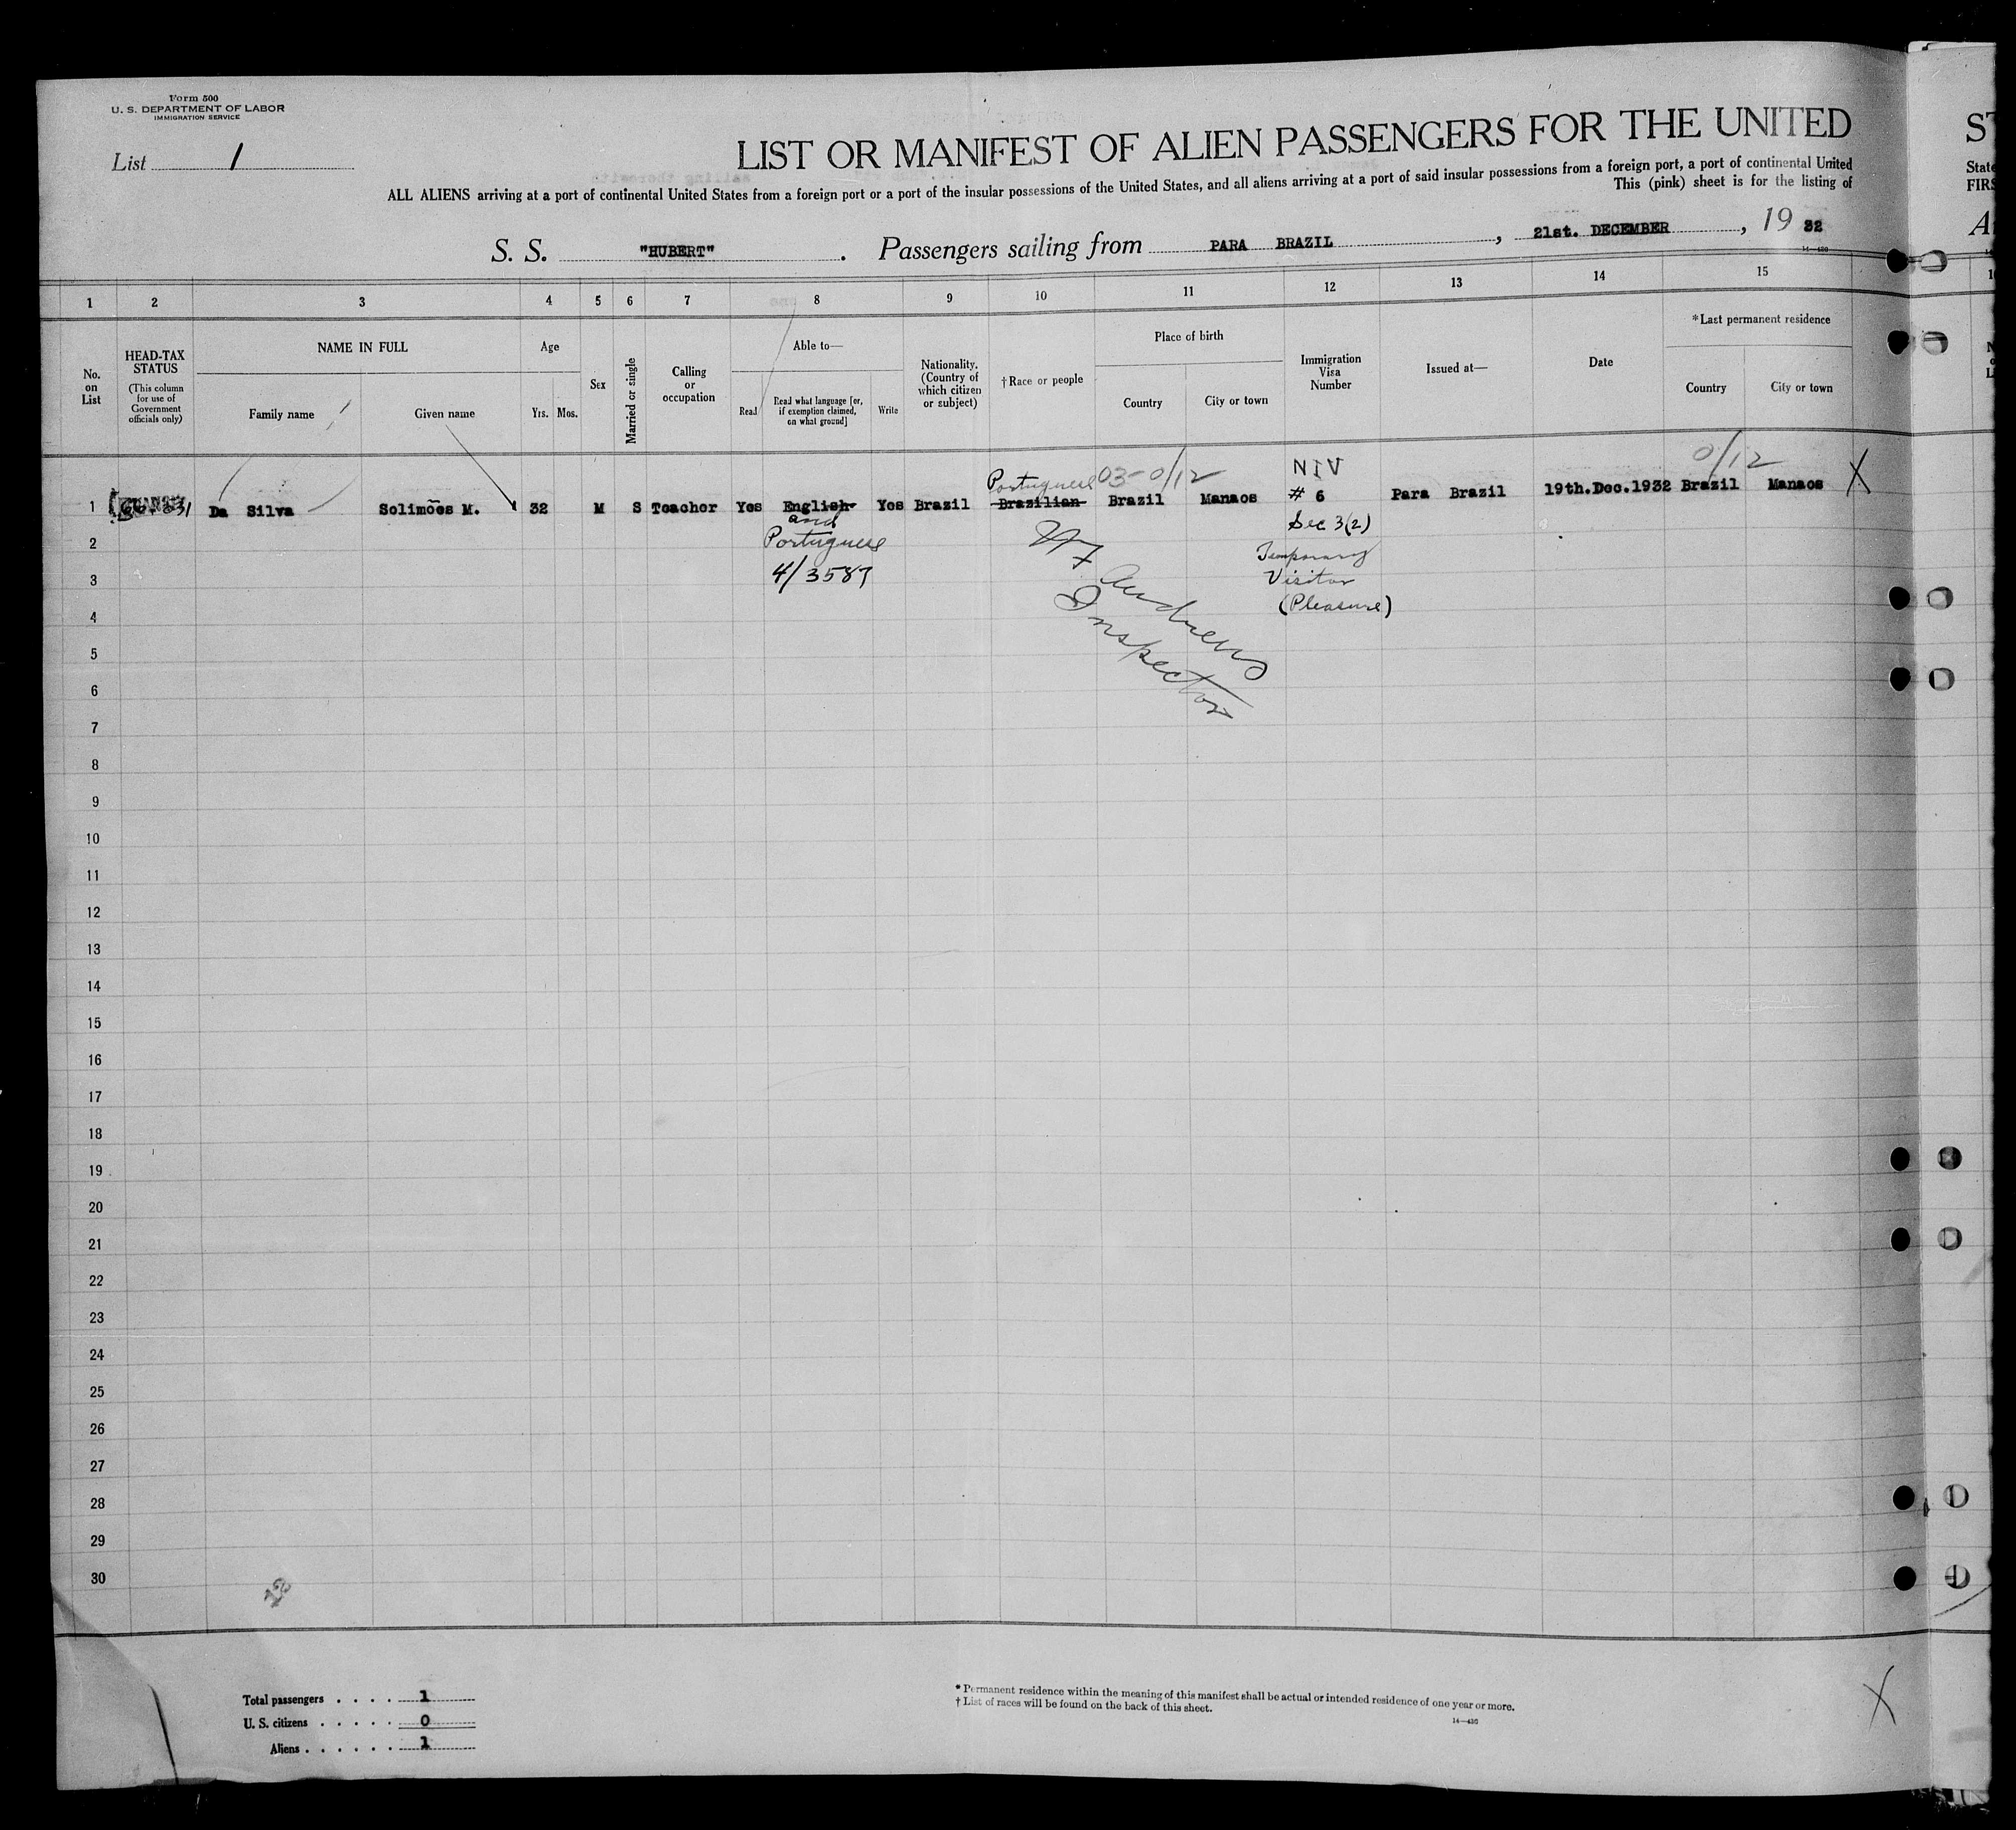 Form 500
U. S. DEPARTMENT OF LABOR
IMMIGRATION SERVICE
List 1
LIST OR MANIFEST OF ALIEN PASSENGERS FOR THE UNITED
ALL ALIENS arriving at a port of continental United States from a foreign port or a port of the insular possessions of the United States, and all aliens arriving at a port of said insular possessions from a foreign port, a port of continental United
This (pink) sheet is for the listing of
S. S. "HUBERT". Passengers sailing from PARA BRAZIL, 21st. DECEMBER, 19 32
14-430
1 2 3 4 5 6 7 8 9 10 11 12 13 14 15
No. on List
HEAD-TAX STATUS
(This column for use of Government officials only)
NAME IN FULL
Family name
Given name
Age
Yrs. Mos.
Sex
Married or single
Calling or occupation
Able to—
Read
Read what language [or, if exemption claimed, on what ground]
Write
Nationality. (Country of which citizen or subject)
† Race or people
Place of birth
Country
City or town
Immigration Visa Number
Issued at—
Date
*Last permanent residence
Country
City or town
Portuguese 03-0/12 NIV 0/12 X
1 Da Silva Solimões M. 32 M S Teacher Yes English Yes Brazil Brazilian Brazil Manaos # 6 Para Brazil 19th.Dec.1932 Brazil Manaos
and
Sec 3(2)
2 Portuguese
Temporary
3 4/3587
Visitor
4
(Pleasure)
Andrews
Inspector
5
6
7
8
9
10
11
12
13
14
15
16
17
18
19
20
21
22
23
24
25
26
27
28
29
30
Total passengers . . . . 1
U. S. citizens . . . . . 0
Aliens . . . . . . 1
* Permanent residence within the meaning of this manifest shall be actual or intended residence of one year or more.
† List of races will be found on the back of this sheet.
14-430
X
ST
State
FIRS